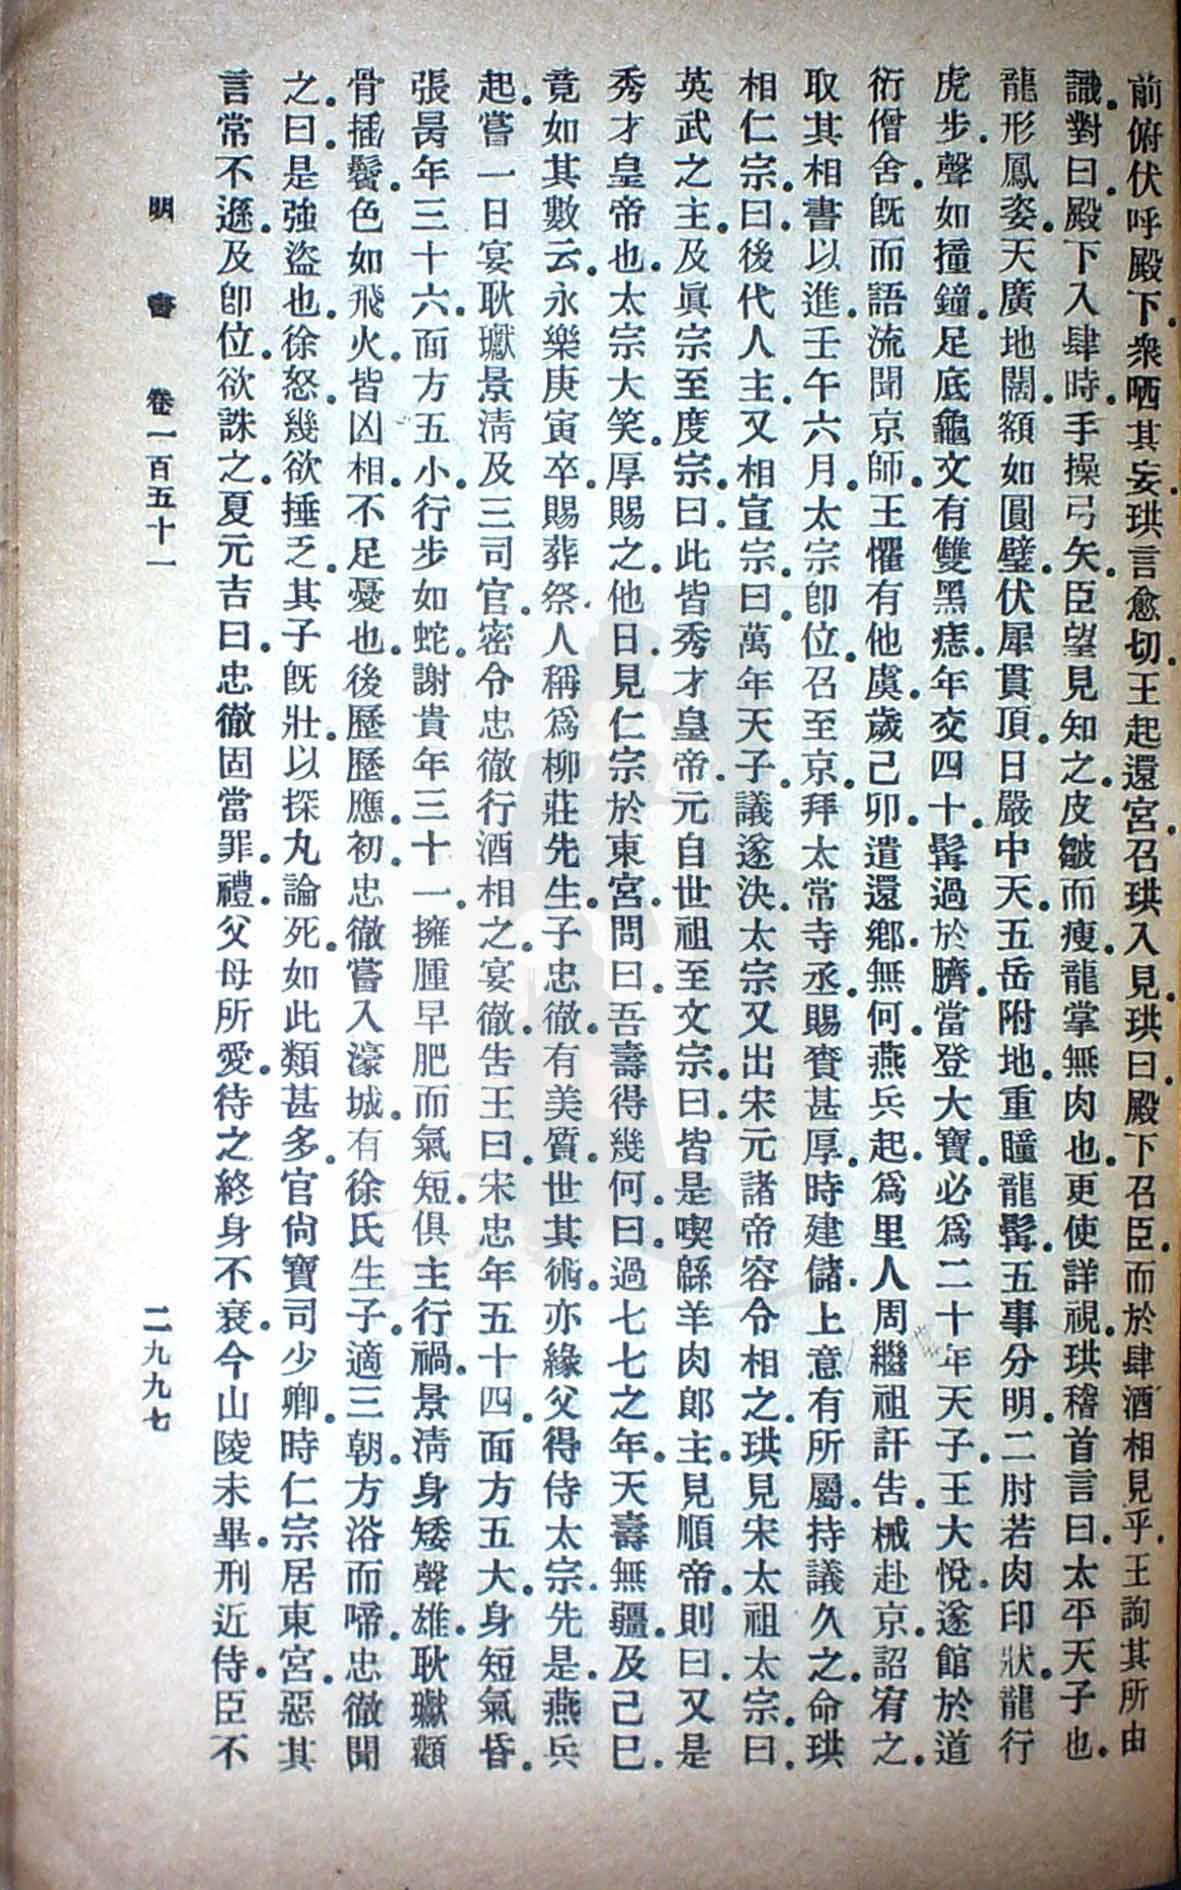 前俯伏呼殿下衆哂其妄珙言愈切王起還宮召珙入見珙曰殿下召臣而於肆酒相見乎王詢其所由
識對曰殿下入肆時手操弓矢臣望見知之皮皺而瘦龍掌無肉也更使詳視珙稽首言曰太平天子也
龍形鳳姿天廣地闊額如圓璧伏犀貫頂日嚴中天五岳附地重瞳龍髯五事分明二肘若肉印狀龍行
虎步聲如撞鐘足底龜文有雙黑痣年交四十髯過於臍當登大寶必爲二十年天子王大悅遂館於道
衍僧舍旣而語流聞京師王懼有他虞歲己卯遣還鄉無何燕兵起爲里人周繼祖訐告械赴京詔宥之
取其相書以進壬午六月太宗卽位召至京拜太常寺丞賜賚甚厚時建儲上意有所屬持議久之命珙
相仁宗曰後代人主又相宣宗曰萬年天子議遂決太宗又出宋元諸帝容令相之珙見宋太祖太宗曰
英武之主及眞宗至度宗曰此皆秀才皇帝元自世祖至文宗曰皆是喫緜羊肉郎主見順帝則曰又是
秀才皇帝也太宗大笑厚賜之他日見仁宗於東宮問曰吾壽得幾何曰過七七之年天壽無疆及己巳
竟如其數云永樂庚寅卒賜葬祭人稱爲柳莊先生子忠徹有美質世其術亦緣父得侍太宗先是燕兵
起嘗一日宴耿瓛景淸及三司官密令忠徹行酒相之宴徹告王曰宋忠年五十四面方五大身短氣昏
張昺年三十六面方五小行步如蛇謝貴年三十一擁腫早肥而氣短俱主行禍景淸身矮聲雄耿瓛顴
骨插鬢色如飛火皆凶相不足憂也後歷歷應初忠徹嘗入濠城有徐氏生子適三朝方浴而啼忠徹聞
之曰是強盜也徐怒幾欲捶之其子旣壯以探丸論死如此類甚多官尙寶司少卿時仁宗居東宮惡其
言常不遜及卽位欲誅之夏元吉曰忠徹固當罪禮父母所愛待之終身不衰今山陵未畢刑近侍臣不
明書 卷一百五十一 二九九七